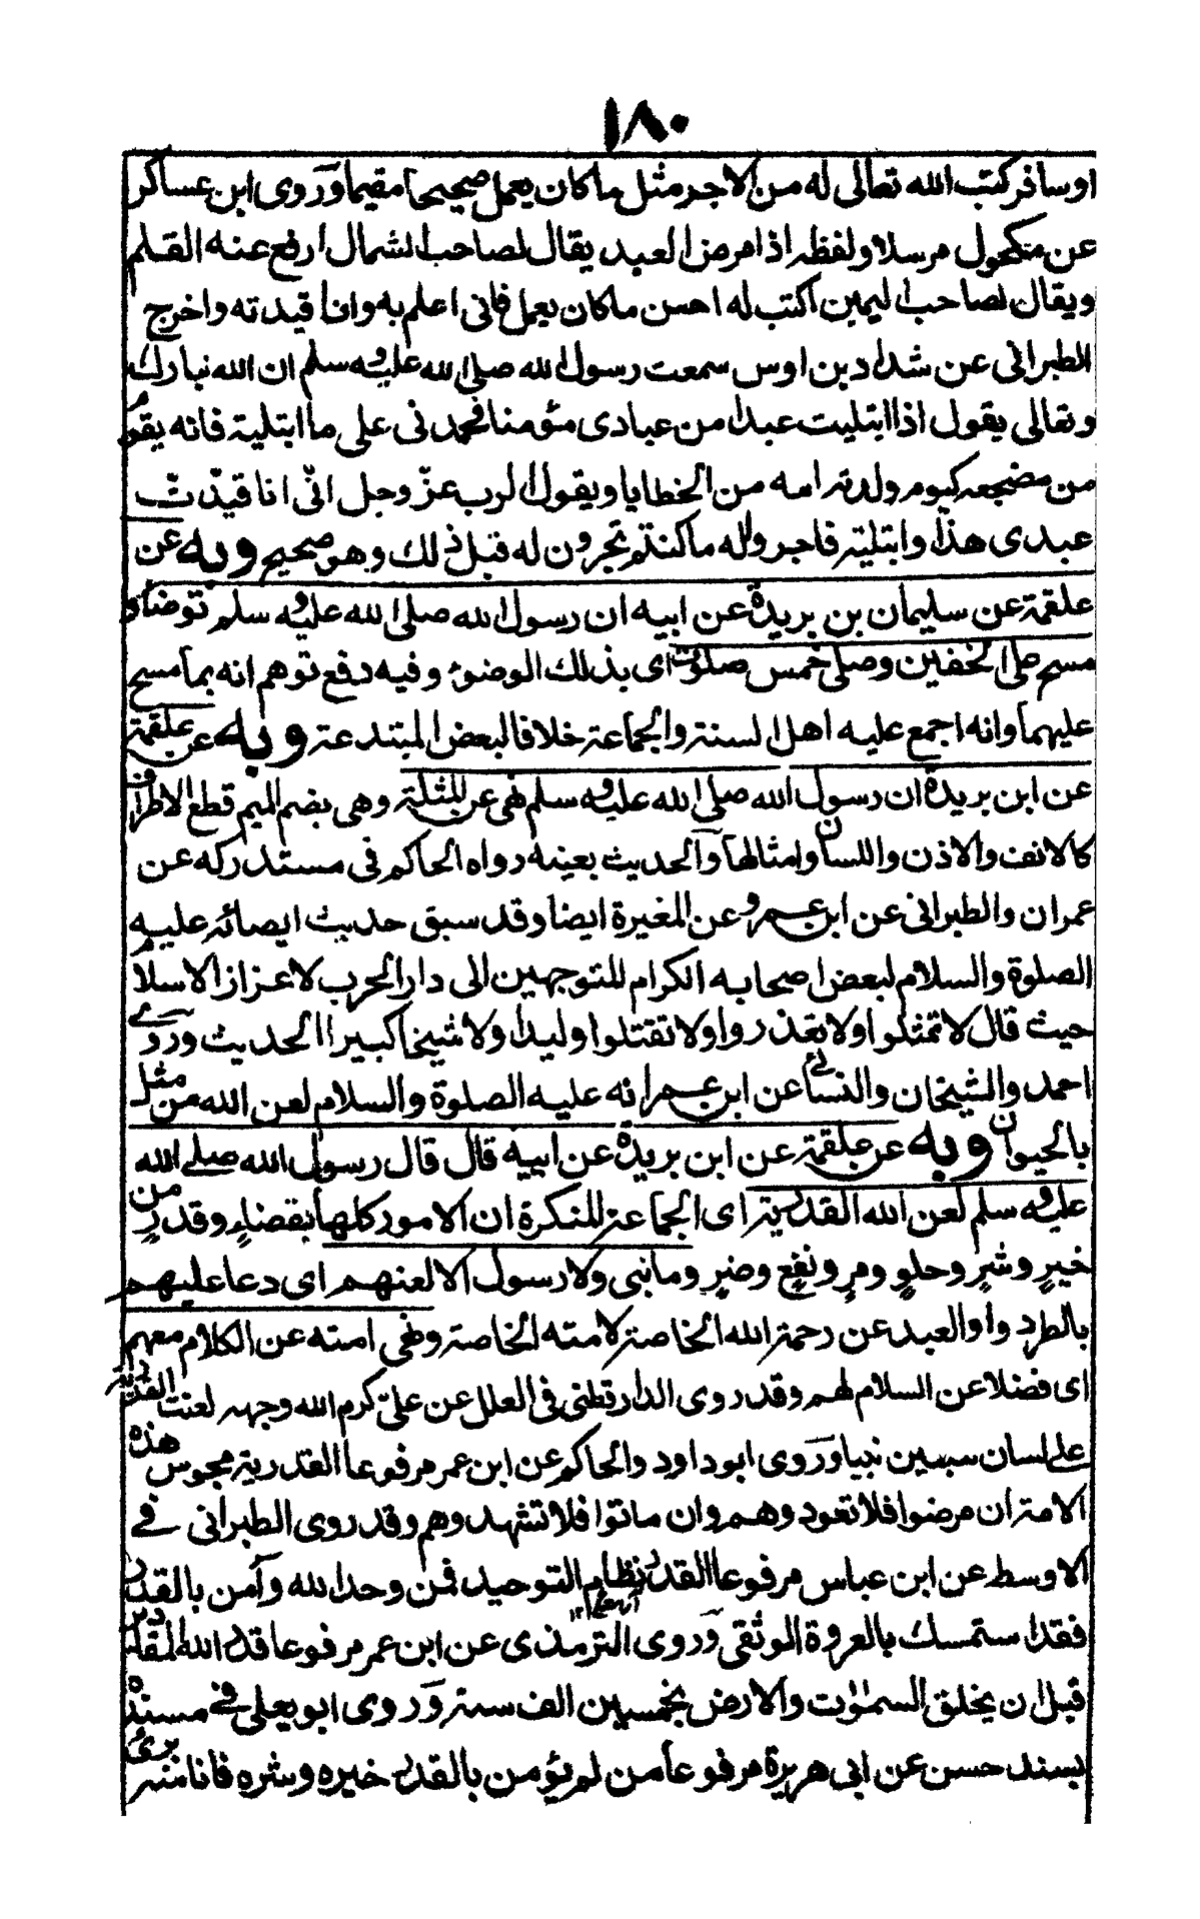 ١٨٠
او سافر كتب الله تعالى له من الاجر مثل ما كان يعمل صحيحا مقيما وروى ابن عساكر
عن مكحول مرسلا ولفظه اذا مرض العبد يقال لصاحب الشمال ارفع عنه القلم
ويقال لصاحب اليمين اكتب له احسن ما كان يعمل فانى اعلم به وانا قيدته واخرج
الطبرانى عن شداد بن اوس سمعت رسول الله صلى الله عليه وسلم ان الله تبارك
وتعالى يقول اذا ابتليت عبدا من عبادى مؤمنا فحمدنى على ما ابتليته فانه يقوم
من مضجعه كيوم ولدته امه من الخطايا ويقول الرب عز وجل انّى انا قيدّت
عبدى هذا وابتليته فاجروا له ما كنتم تجرون له قبل ذلك وهو صحيح وبه عن
علقمة عن سليمان بن بريدة عن ابيه ان رسول الله صلى الله عليه وسلم توضأ و
مسح على الخفين وصلى خمس صلوت اى بذلك الوضوء وفيه دفع توهم انه بما مسح
عليهما وانه اجمع عليه اهل السنة والجماعة خلافا لبعض المبتدعة وبه عن علقمة
عن ابن بريدة ان رسول الله صلى الله عليه وسلم نهى عن المثلة وهى بضم الميم قطع الاطراف
كالانف والاذن واللسان وامثالها والحديث بعينه رواه الحاكم فى مستدركه عن
عمران والطبرانى عن ابن عمرو عن المغيرة ايضا وقد سبق حديث ايصائه عليه
الصلوة والسلام لبعض اصحابه الكرام للتوجهين الى دار الحرب لاعزاز الاسلام
حيث قال لا تمثلوا ولا تغدروا ولا تقتلوا وليدا ولا شيخا كبيرا الحديث وروى
احمد والشيخان والنسائى عن ابن عمر انه عليه الصلوة والسلام لعن الله من مثل
بالحيوان وبه عن علقمة عن ابن بريدة عن ابيه قال قال رسول الله صلى الله
عليه وسلم لعن الله القدرية اى الجماعة المنكرة ان الامور كلها بقضاءٍ وقدرٍ من
خيرٍ وشرٍ وحلوٍ ومرٍ ونفعٍ وضرٍ وما نبى ولا رسول الا لعنهم اى دعا عليهم
بالطرد والعبد عن رحمة الله الخاصة لامته الخاصة ونهى امته عن الكلام معهم
اى فضلا عن السلام لهم وقد روى الدارقطنى فى العلل عن علىّ كرم الله وجهه لعنت القدرية
على لسان سبعين نبيا وروى ابو داود والحاكم عن ابن عمر مرفوعا القدرية مجوس هذه
الامة ان مرضوا فلا تعودوهم وان ماتوا فلا تشهدوهم وقد روى الطبرانى فى
الاوسط عن ابن عباس مرفوعا القدر نظام التوحيد فمن وحد الله وآمن بالقدر
فقد استمسك بالعروة الوثقى وروى الترمذى عن ابن عمر مرفوعا قدر الله المقادير
قبل ان يخلق السموت والارض بخمسين الف سنة وروى ابو يعلى فى مسنده
بسند حسن عن ابى هريرة مرفوعا من لم يؤمن بالقدر خيره وشره فانا منه برئ